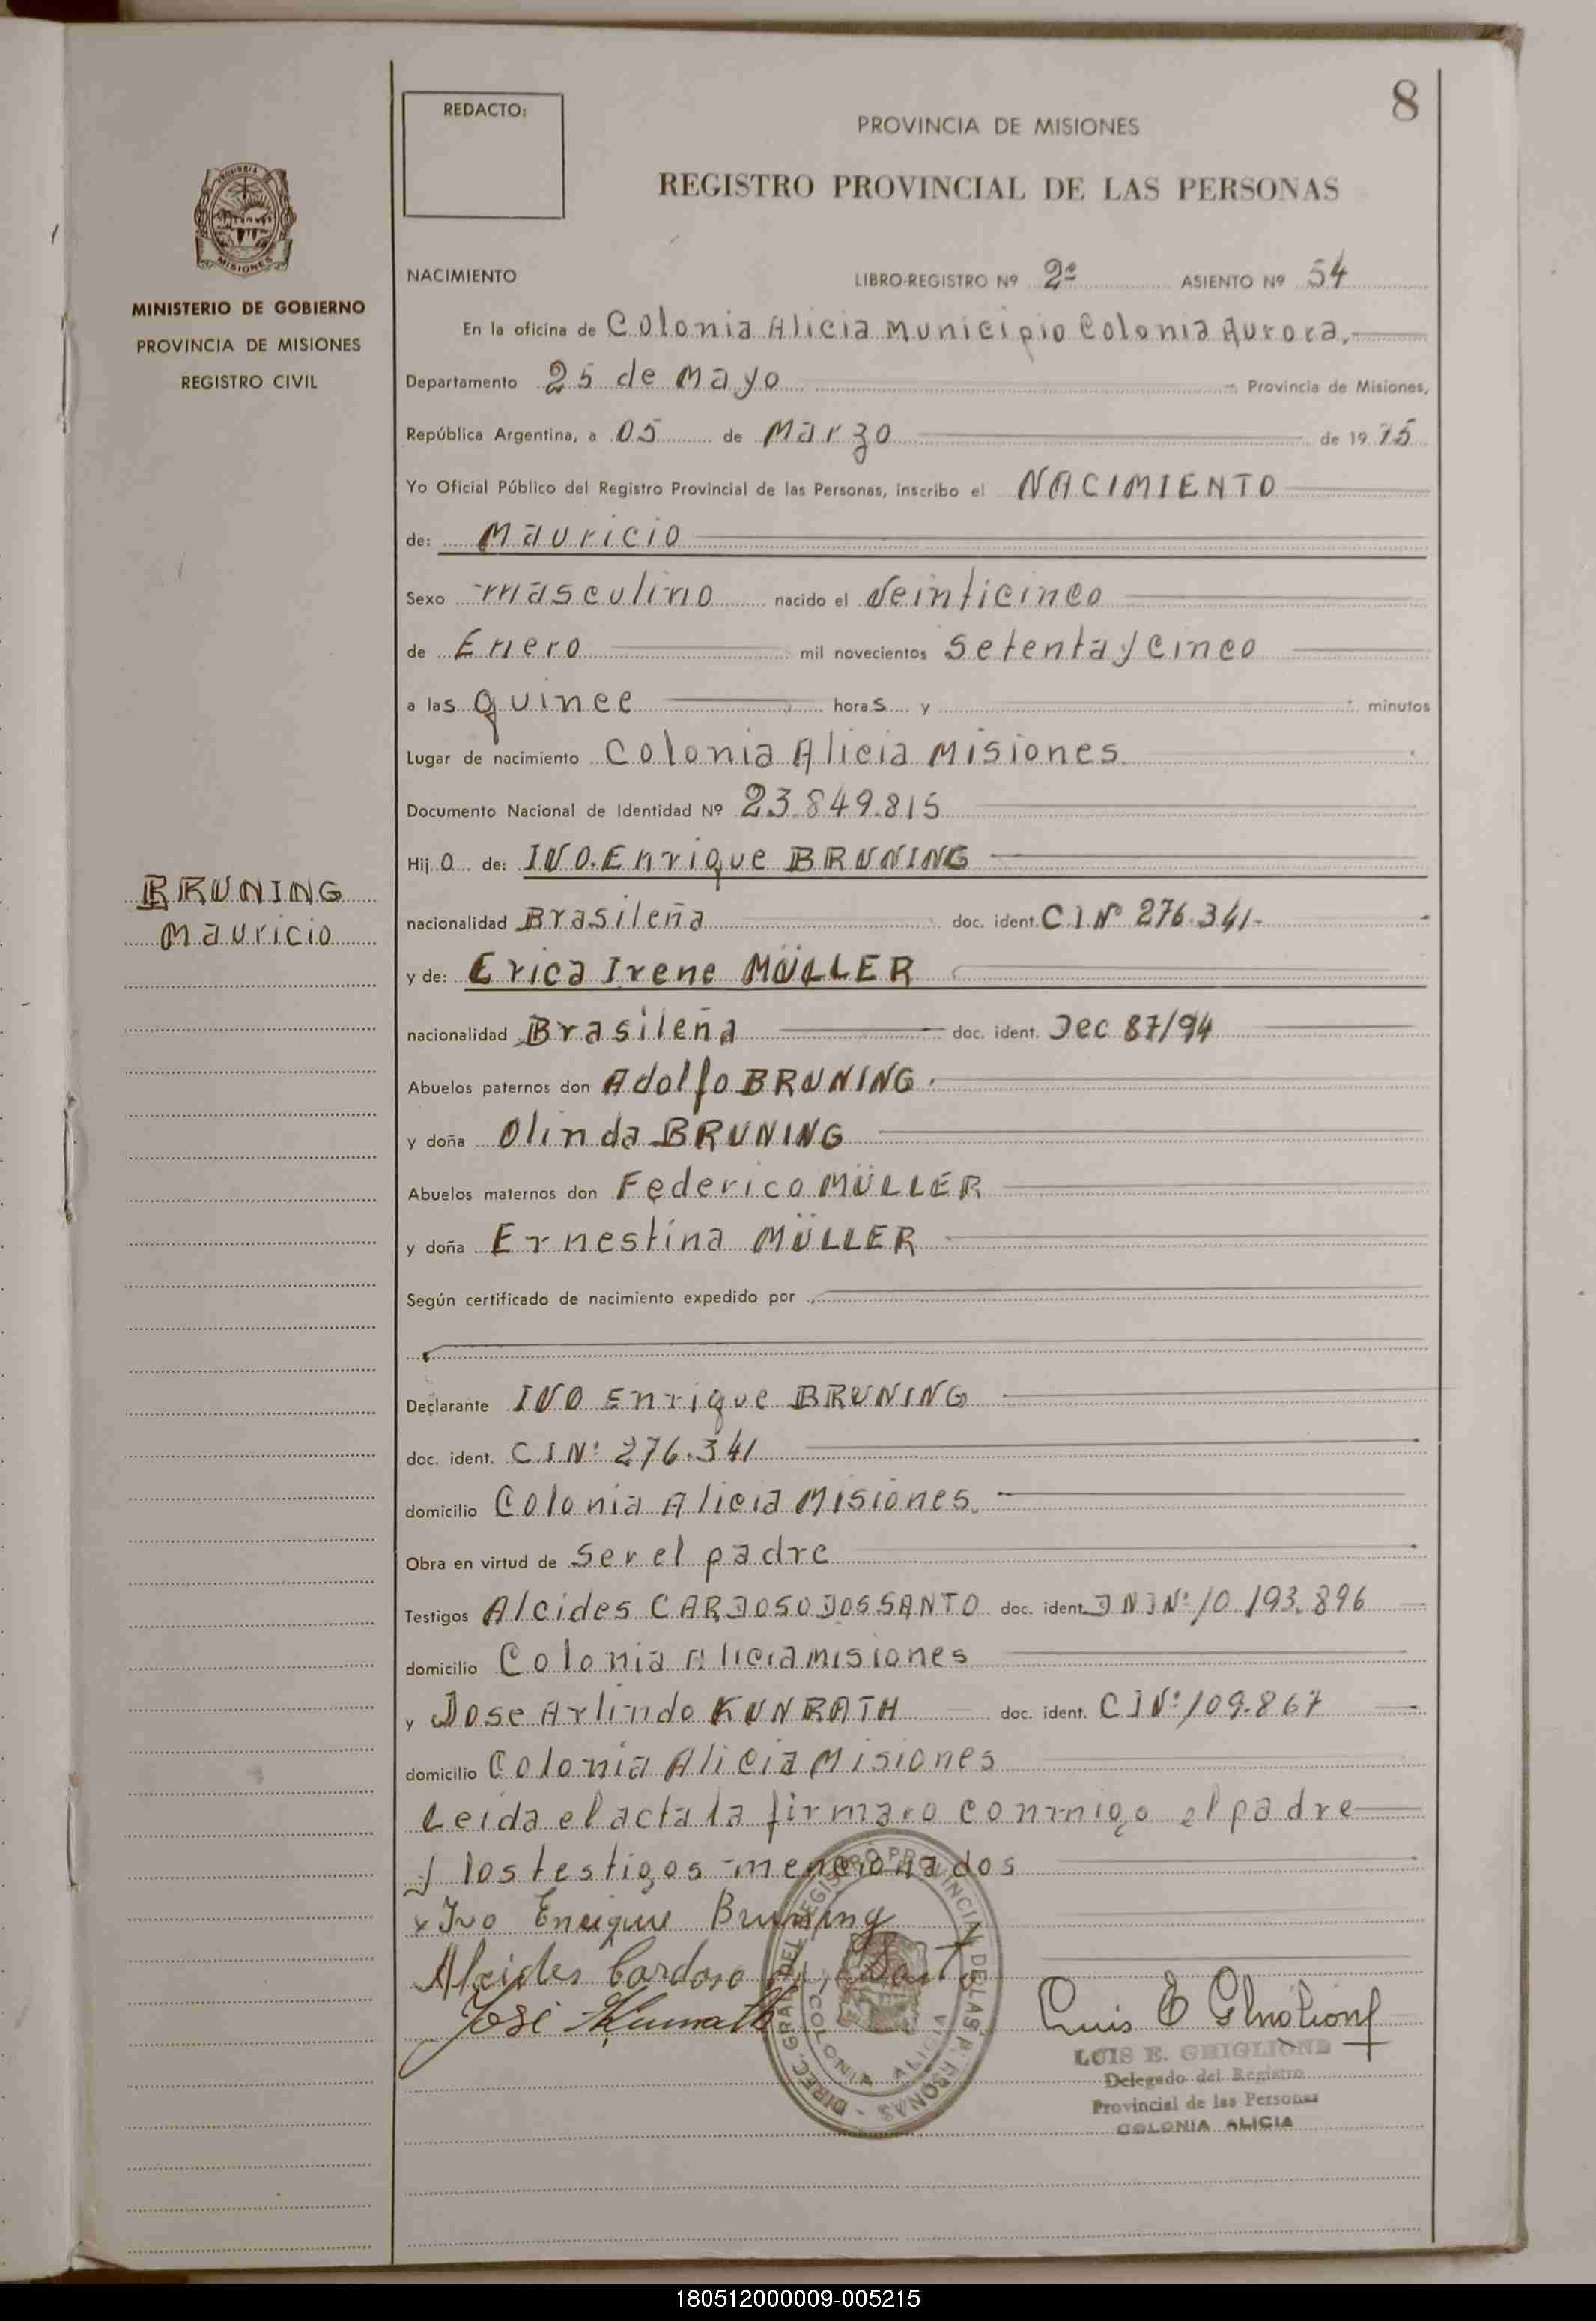 8
REDACTO:
PROVINCIA DE MISIONES
REGISTRO PROVINCIAL DE LAS PERSONAS
MISIONES
MINISTERIO DE GOBIERNO
PROVINCIA DE MISIONES
REGISTRO CIVIL
NACIMIENTO LIBRO-REGISTRO Nº 2º ASIENTO Nº 54
En la oficina de Colonia Alicia Municipio Colonia Aurora,
Departamento 25 de Mayo Provincia de Misiones,
República Argentina, a 05 de Marzo de 1975
Yo Oficial Público del Registro Provincial de las Personas, inscribo el NACIMIENTO
de: Mauricio
Sexo masculino nacido el Veinticinco
de Enero mil novecientos Setenta y Cinco
a las quince horas y minutos
Lugar de nacimiento Colonia Alicia Misiones.
Documento Nacional de Identidad Nº 23.849.815
Hijo de: IVO. Enrique BRUNING
BRUNING
Mauricio
nacionalidad Brasileña doc. ident. C.I.Nº 276.341-
y de: Erica Irene MÜLLER
nacionalidad Brasileña doc. ident. Dec 87/94
Abuelos paternos don Adolfo BRUNING.
y doña Olinda BRUNING
Abuelos maternos don Federico MÜLLER
y doña Ernestina MÜLLER
Según certificado de nacimiento expedido por
Declarante IVO Enrique BRUNING
doc. ident. C.I.Nº 276.341
domicilio Colonia Alicia Misiones.
Obra en virtud de Ser el padre
Testigos Alcides CARDOSO DOS SANTO doc. ident. DNI Nº 10.193.896
domicilio Colonia Alicia misiones
y Jose Arlindo KUNRATH doc. ident. CI Nº 109.867
domicilio Colonia Alicia Misiones
Leida el acta la firmaro conmigo el padre
y los testigos mencionados
x Ivo Enrique Bruning
Alcides Cardoso Santo
José Kunrath
DIREC. GRAL. DEL REGISTRO PROVINCIAL DE LAS PERSONAS
COLONIA ALICIA
LUIS E. GHIGLIONE
Delegado del Registro
Provincial de las Personas
COLONIA ALICIA
180512000009-005215